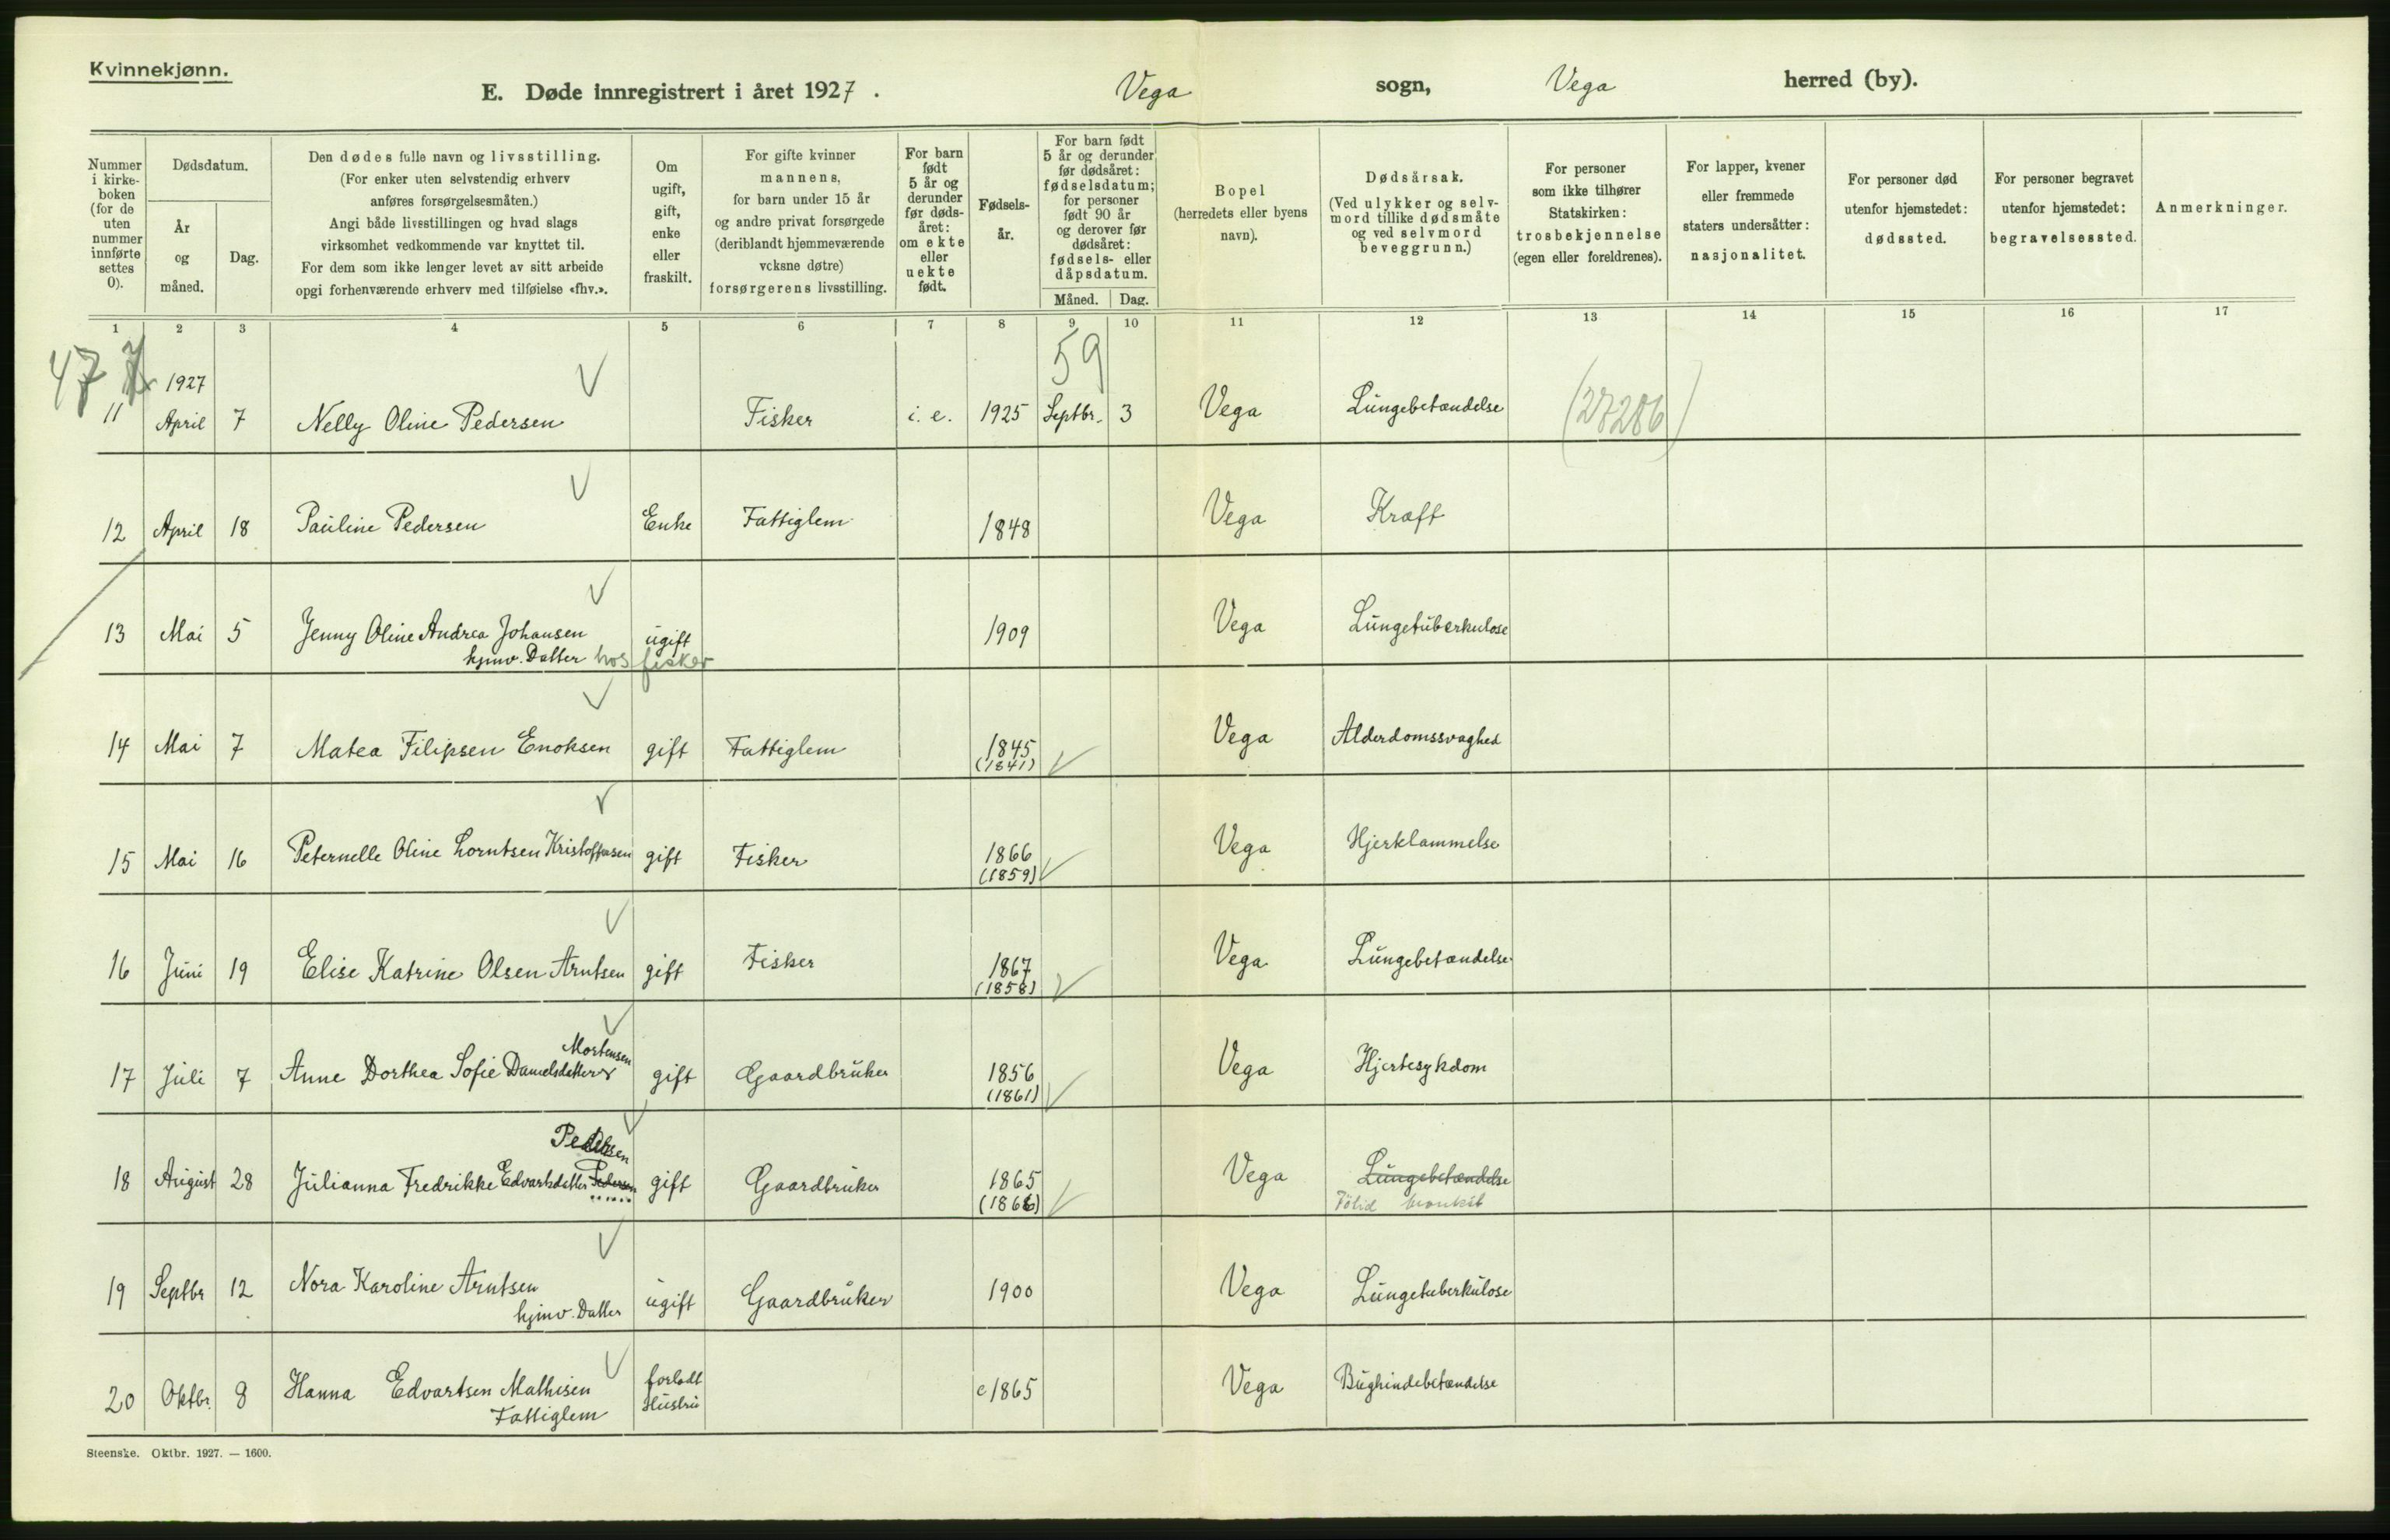 Kvinnekjønn.
E. Døde innregistrert i året 1927. Vega sogn, Vega herred (by).
Nummer i kirke-boken (for de uten nummer innførte settes 0).
Dødsdatum.
År og måned.
Dag.
Den dødes fulle navn og livsstilling.
(For enker uten selvstendig erhverv
anføres forsørgelsesmåten.)
Angi både livsstillingen og hvad slags
virksomhet vedkommende var knyttet til.
For dem som ikke lenger levet av sitt arbeide
opgi forhenværende erhverv med tilføielse «fhv.».
Om ugift, gift, enke eller fraskilt.
For gifte kvinner
mannens,
for barn under 15 år
og andre privat forsørgede
(deriblandt hjemmeværende
voksne døtre)
forsørgerens livsstilling.
For barn født 5 år og derunder før døds-året: om ekte eller uekte født.
Fødsels-år.
For barn født
5 år og derunder
før dødsåret:
fødselsdatum;
for personer
født 90 år
og derover før
dødsåret:
fødsels- eller
dåpsdatum.
Måned. Dag.
Bopel
(herredets eller byens
navn).
Dødsårsak.
(Ved ulykker og selv-
mord tillike dødsmåte
og ved selvmord
beveggrunn.)
For personer
som ikke tilhører
Statskirken:
trosbekjennelse
(egen eller foreldrenes).
For lapper, kvener
eller fremmede
staters undersåtter:
nasjonalitet.
For personer død
utenfor hjemstedet:
dødssted.
For personer begravet
utenfor hjemstedet:
begravelsessted.
Anmerkninger.
1 2 3 4 5 6 7 8 9 10 11 12 13 14 15 16 17
47 59
1927
11 April 7 Nelly Oline Pedersen Fisker i. e. 1925 Septbr. 3 Vega Lungebetændelse (27286)
12 April 18 Pauline Pedersen Enke Fattiglem 1848 Vega Kræft
13 Mai 5 Jenny Oline Andrea Johansen ugift 1909 Vega Lungetuberkulose
hjmv. Datter hos fisker
14 Mai 7 Matea Filipsen Enoksen gift Fattiglem 1845 Vega Alderdomssvaghed
(1841)
15 Mai 16 Peternelle Oline Lorntsen Kristoffersen gift Fisker 1866 Vega Hjerklammelse
(1859)
16 Juni 19 Elise Katrine Olsen Arntsen gift Fisker 1867 Vega Lungebetændelse
(1858)
Mortensen
17 Juli 7 Anne Dorthea Sofie Danielsdatter gift Gaardbruker 1856 Vega Hjertesykdom
(1861)
Pedersen
18 August 28 Julianna Fredrikke Edvartsdatter Pedersen gift Gaardbruker 1865 Vega Lungebetændelse
(1866) bronkit
19 Septbr 12 Nora Karoline Arntsen ugift Gaardbruker 1900 Vega Lungetuberkulose
hjmv. Datter
20 Oktbr. 8 Hanna Edvartsen Mathisen forladt Hustru c 1865 Vega Bughindebetændelse
Fattiglem
Steenske. Oktbr. 1927. — 1600.